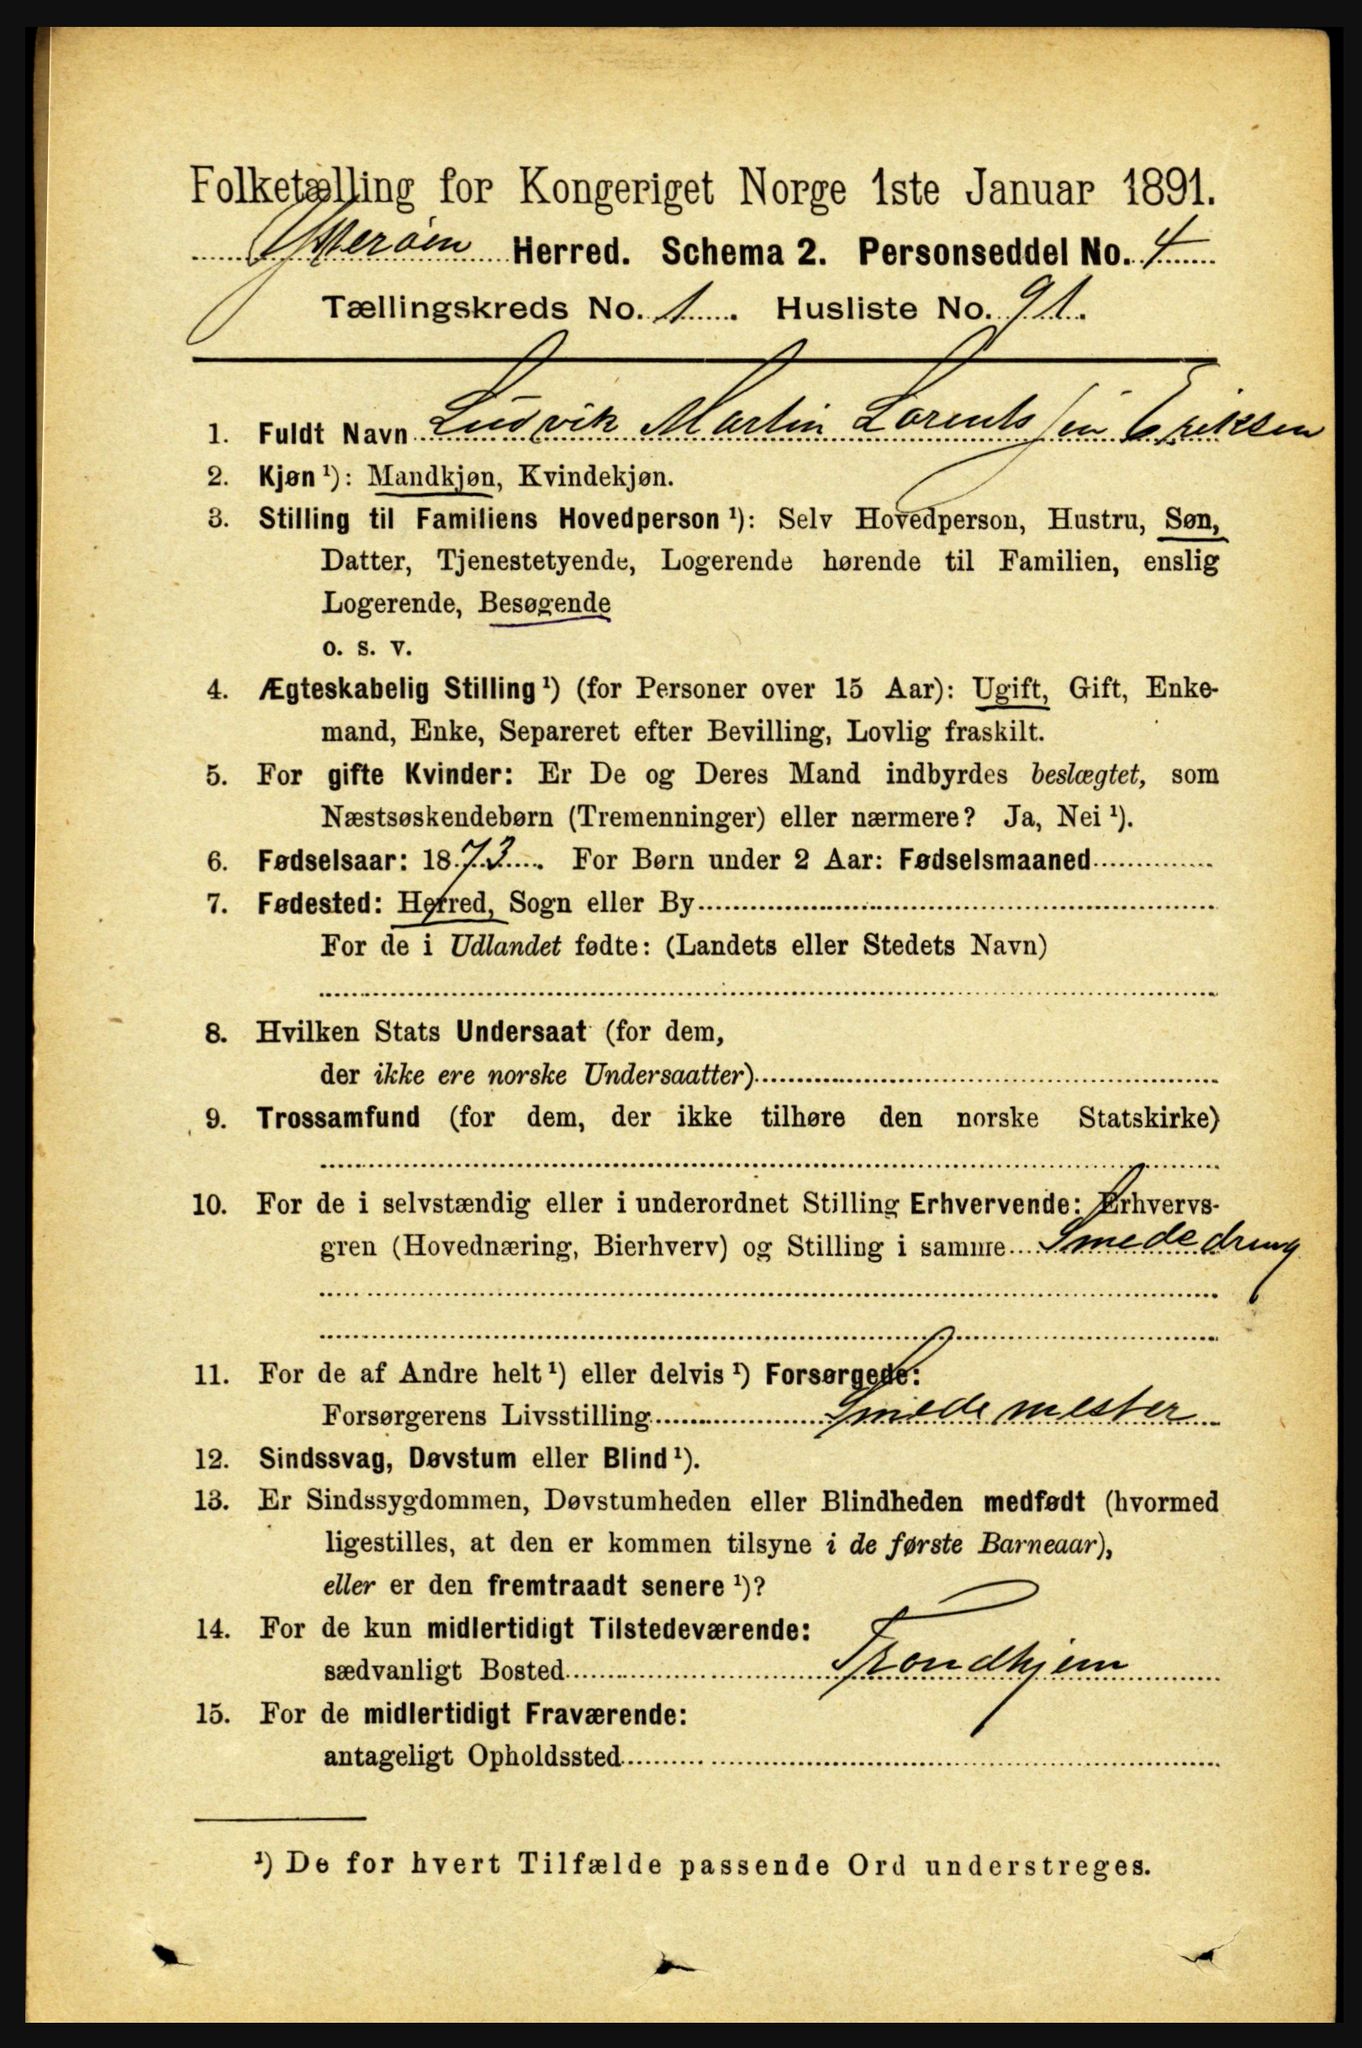 Folketælling for Kongeriget Norge 1ste Januar 1891.
Ytterøen Herred. Schema 2. Personseddel No. 4
Tællingskreds No. 1. Husliste No. 91.
1. Fuldt Navn Ludvik Martin Lorentsjin Eriksen
2. Kjøn ¹): Mandkjøn, Kvindekjøn.
3. Stilling til Familiens Hovedperson ¹): Selv Hovedperson, Hustru, Søn,
Datter, Tjenestetyende, Logerende hørende til Familien, enslig
Logerende, Besøgende
o. s. v.
4. Ægteskabelig Stilling ¹) (for Personer over 15 Aar): Ugift, Gift, Enke-
mand, Enke, Separeret efter Bevilling, Lovlig fraskilt.
5. For gifte Kvinder: Er De og Deres Mand indbyrdes beslægtet, som
Næstsøskendebørn (Tremenninger) eller nærmere? Ja, Nei ¹).
6. Fødselsaar: 1873. For Børn under 2 Aar: Fødselsmaaned
7. Fødested: Herred, Sogn eller By
For de i Udlandet fødte: (Landets eller Stedets Navn)
8. Hvilken Stats Undersaat (for dem,
der ikke ere norske Undersaatter)
9. Trossamfund (for dem, der ikke tilhøre den norske Statskirke)
10. For de i selvstændig eller i underordnet Stilling Erhvervende: Erhvervs-
gren (Hovednæring, Bierhverv) og Stilling i samme Smededreng
11. For de af Andre helt ¹) eller delvis ¹) Forsørgede:
Forsørgerens Livsstilling Smedemester
12. Sindssvag, Døvstum eller Blind ¹).
13. Er Sindssygdommen, Døvstumheden eller Blindheden medfødt (hvormed
ligestilles, at den er kommen tilsyne i de første Barneaar),
eller er den fremtraadt senere ¹)?
14. For de kun midlertidigt Tilstedeværende:
sædvanligt Bosted Trondhjem
15. For de midlertidigt Fraværende:
antageligt Opholdssted
¹) De for hvert Tilfælde passende Ord understreges.